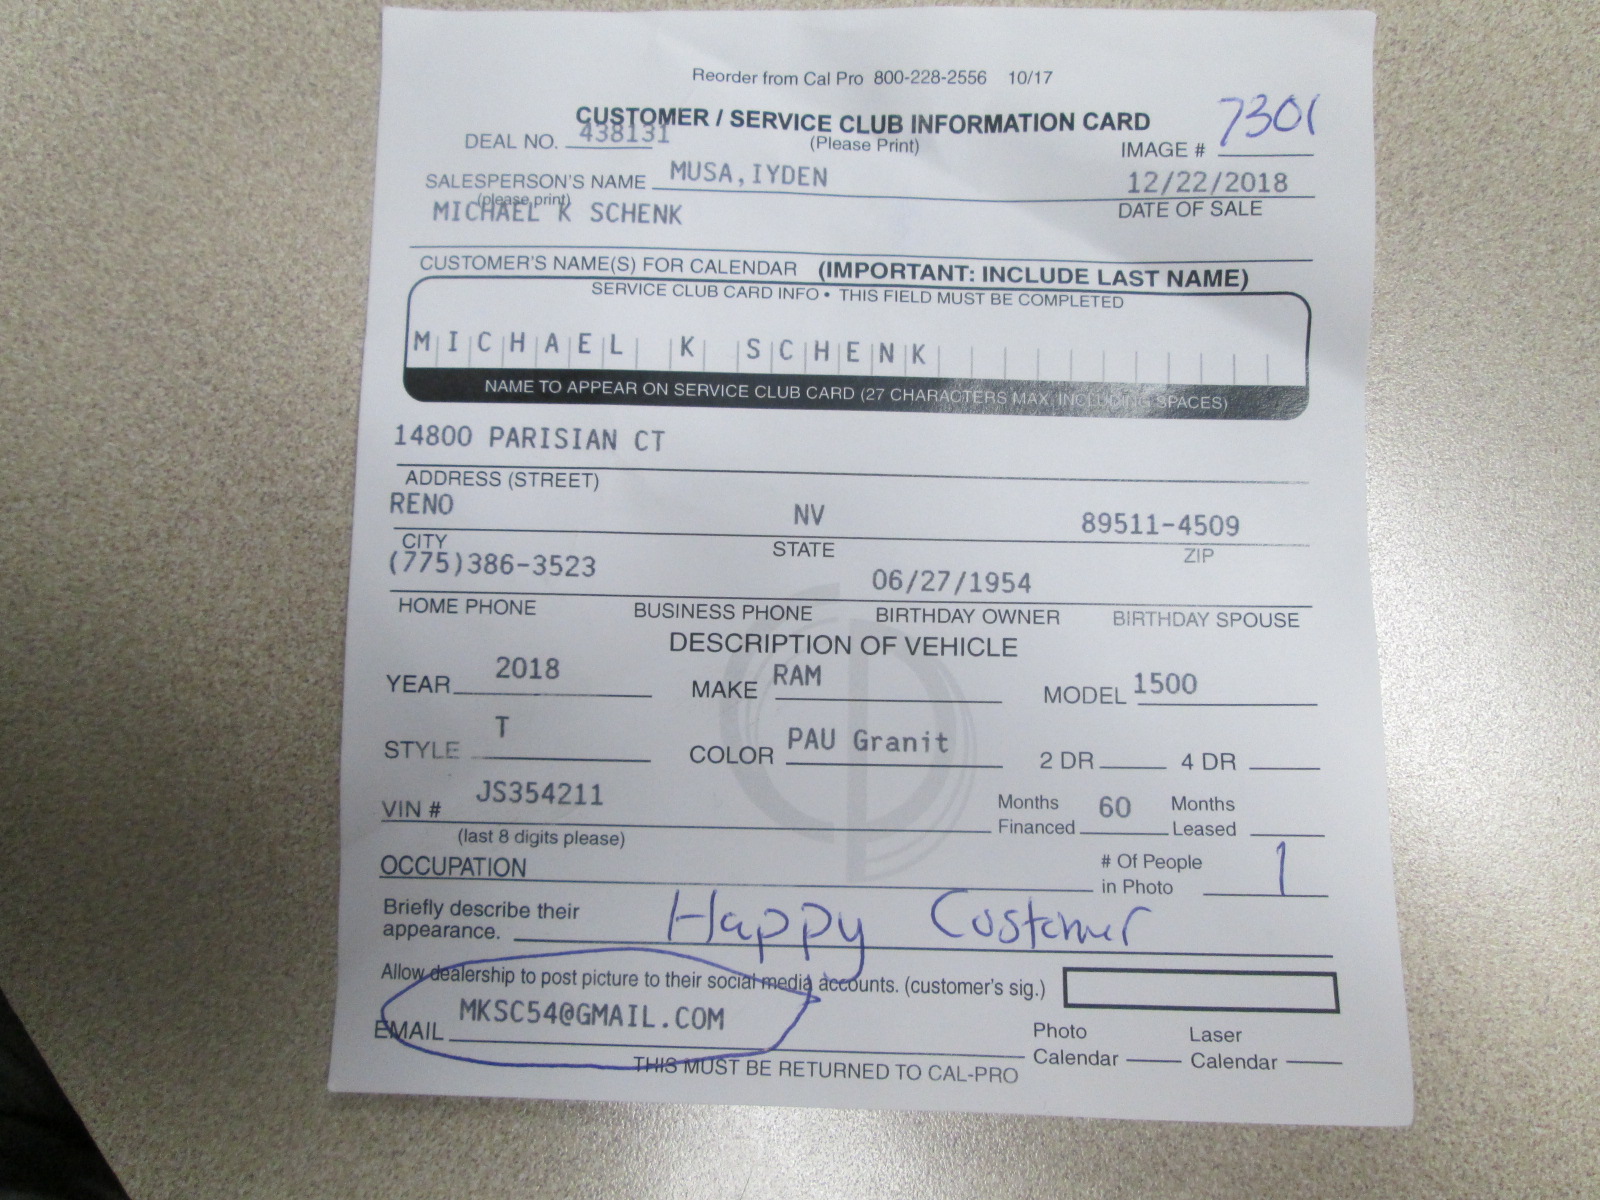 Reorder from Cal Pro 800-228-2556 10/17
CUSTOMER / SERVICE CLUB INFORMATION CARD
(Please Print)
DEAL NO. 438131
IMAGE # 7301
SALESPERSON'S NAME MUSA,IYDEN 12/22/2018
(please print) DATE OF SALE
MICHAEL K SCHENK
CUSTOMER'S NAME(S) FOR CALENDAR (IMPORTANT: INCLUDE LAST NAME)
SERVICE CLUB CARD INFO • THIS FIELD MUST BE COMPLETED
MICHAEL K SCHENK
NAME TO APPEAR ON SERVICE CLUB CARD (27 CHARACTERS MAX, INCLUDING SPACES)
14800 PARISIAN CT
ADDRESS (STREET)
RENO NV 89511-4509
CITY STATE ZIP
(775)386-3523 06/27/1954
HOME PHONE BUSINESS PHONE BIRTHDAY OWNER BIRTHDAY SPOUSE
DESCRIPTION OF VEHICLE
YEAR 2018 MAKE RAM MODEL 1500
STYLE T COLOR PAU Granit 2 DR 4 DR
VIN # JS354211 Months Financed 60 Months Leased
(last 8 digits please)
OCCUPATION # Of People in Photo 1
Briefly describe their appearance. Happy Customer
Allow dealership to post picture to their social media accounts. (customer's sig.)
EMAIL MKSC54@GMAIL.COM Photo Calendar Laser Calendar
THIS MUST BE RETURNED TO CAL-PRO